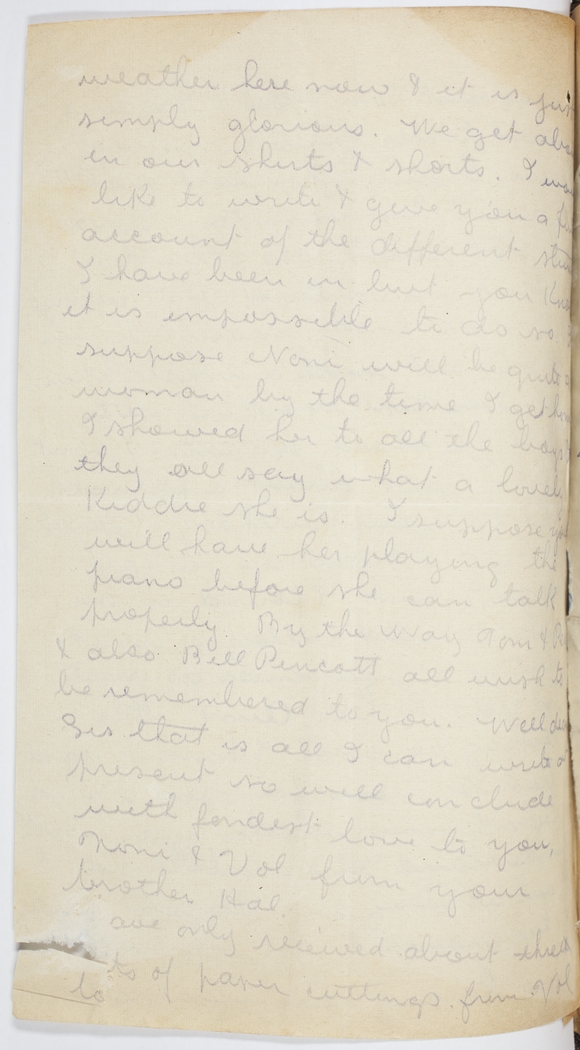 weather here now & it is just
simply glorious. We get abo
in our shirts & shorts. I wou
like to write & give you a fu
account of the different stu
I have been in but you Kno
it is impossible to do so.
suppose Noni will be quite a
woman by the time I get hom
I showed her to all the boys &
they all say what a lovel
Kiddie she is. I suppose yo
will have her playing the
piano before she can talk
properly. By the way Tom &
& also Bill Pincott all wish to
be remembered to you. Well dea
Sis that is all I can write a
present so will conclude
with fondest love to you,
Noni & Vol from your
brother Hal.
ave only received about three
ts of paper cuttings from Vol
to